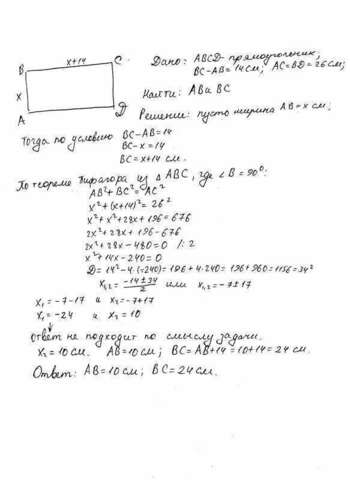 x+14
B
C
x
A
D
Дано: ABCD - прямоугольник;
BC-AB=14см; AC=BD=26см;
Найти: AB и BC
Решение: пусть ширина AB=x см,
Тогда по условию BC-AB=14
BC-x=14
BC=x+14 см.
По теореме Пифагора из △ABC, где ∠B=90°:
AB²+BC²=AC²
x²+(x+14)²=26²
x²+x²+28x+196=676
2x²+28x+196-676
2x²+28x-480=0 /:2
x²+14x-240=0
D=14²-4·(-240)=196+4·240=196+960=1156=34²
x₁,₂=(-14±34)/2 или x₁,₂=-7±17
x₁=-7-17 и x₂=-7+17
x₁=-24 и x₂=10
ответ не подходит по смыслу задачи.
x₂=10см. AB=10см; BC=AB+14=10+14=24см.
Ответ: AB=10см; BC=24см.